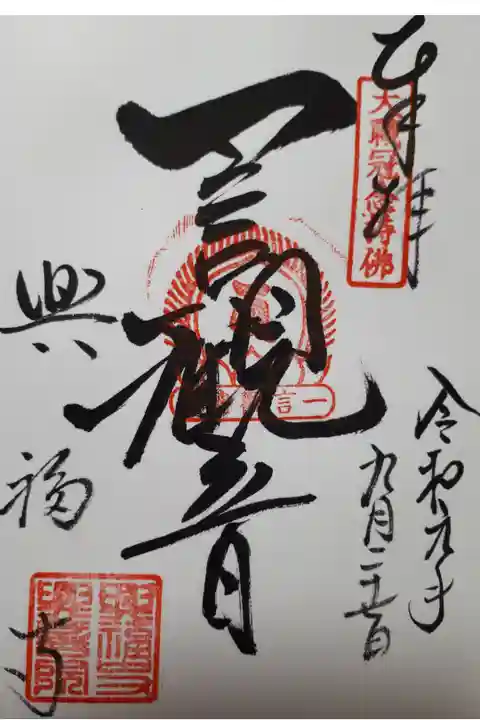 奉拝
大職冠念持佛
令和元年
九月二
一言観音
一言
興福寺